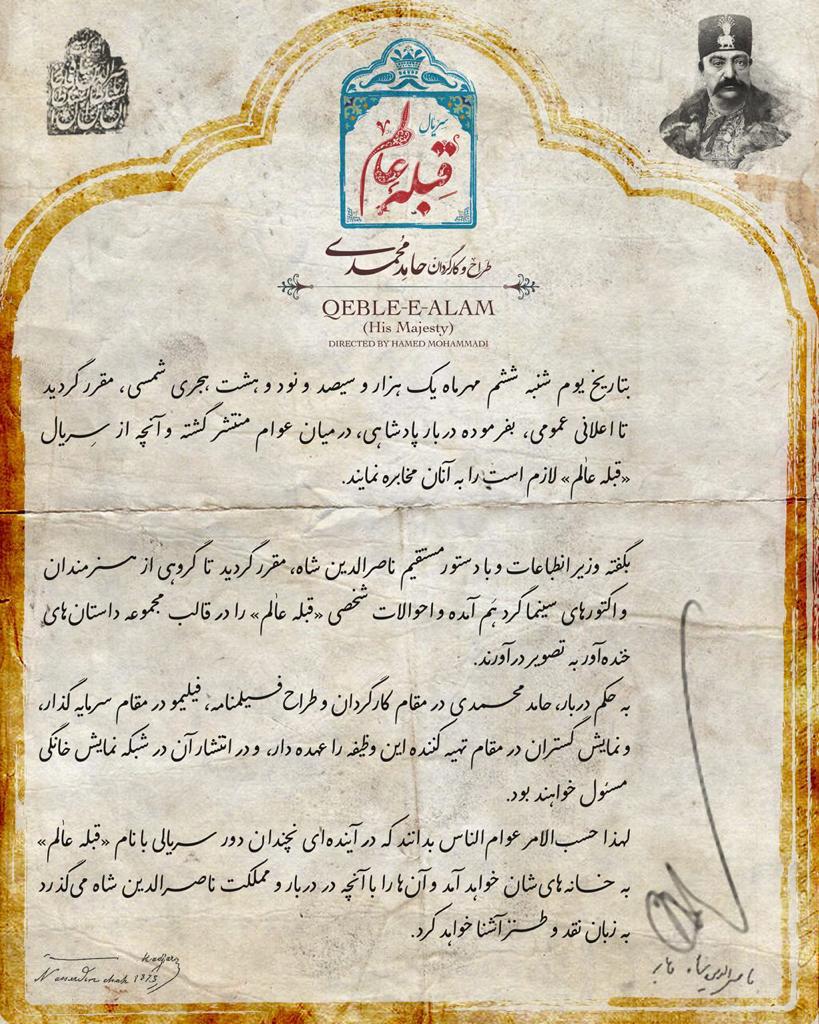 سریال
قبله عالم
طراح و کارگردان حامد محمدی
QEBLE-E-ALAM
(His Majesty)
DIRECTED BY HAMED MOHAMMADI
بتاریخ یوم شنبه ششم مهرماه یک هزار و سیصد و نود و هشت هجری شمسی، مقرر گردید
تا اعلانی عمومی، بفرموده دربار پادشاهی، در میان عوام منتشر گشته و آنچه از سریال
«قبله عالم» لازم است را به آنان مخابره نمایند.
بگفته وزیر انطباعات و با دستور مستقیم ناصرالدین شاه، مقرر گردید تا گروهی از هنرمندان
و اکتورهای سینما گرد هم آمده و احوالات شخصی «قبله عالم» را در قالب مجموعه داستان‌های
خنده‌آور به تصویر درآورند.
به حکم دربار، حامد محمدی در مقام کارگردان و طراح فیلمنامه، فیلیمو در مقام سرمایه گذار،
و نمایش گستران در مقام تهیه کننده این وظیفه را عهده دار، و در انتشار آن در شبکه نمایش خانگی
مسئول خواهند بود.
لهذا حسب‌الامر عوام الناس بدانند که در آینده‌ای نچندان دور سریالی با نام «قبله عالم»
به خانه‌های‌شان خواهد آمد و آن‌ها را با آنچه در دربار و مملکت ناصرالدین شاه می‌گذرد
به زبان نقد و طنز آشنا خواهد کرد.
ناصرالدین شاه
Kadjar
Nasserdin chah 1873